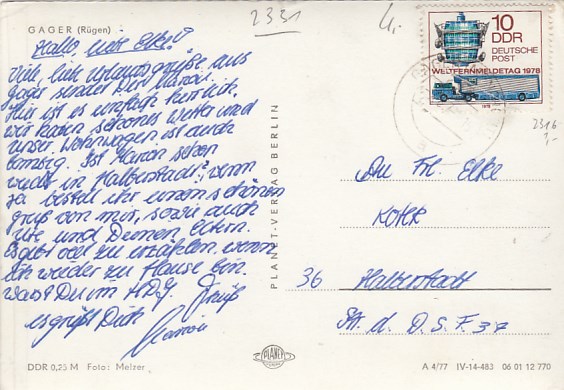 GAGER (Rügen)
2331
4,-
Hallo, Elke!
Viele liebe Urlaubsgrüße aus
Gager sendet Dir
Hier ist es einfach herrlich,
wir haben schönes Wetter und
unser Wohnwagen ist auch
bombig. Ist schon
wieder in Halberstadt? wenn
ja bestell ihr einen schönen
Gruß von mir, sowie auch
Ute und Deinen Eltern.
Es gibt viel zu erzählen wenn
ich wieder zu Hause bin.
Warst Du im
es grüßt Dich
DDR 0,25 M Foto: Melzer
PLANET-VERLAG BERLIN
PLANET
10
DDR
DEUTSCHE
POST
WELTFERNMELDETAG 1978
1978
2316
1,-
An Frl. Elke
36 Halberstadt
Str. d. D. S. F. 37
A 4/77 IV-14-483 06 01 12 770